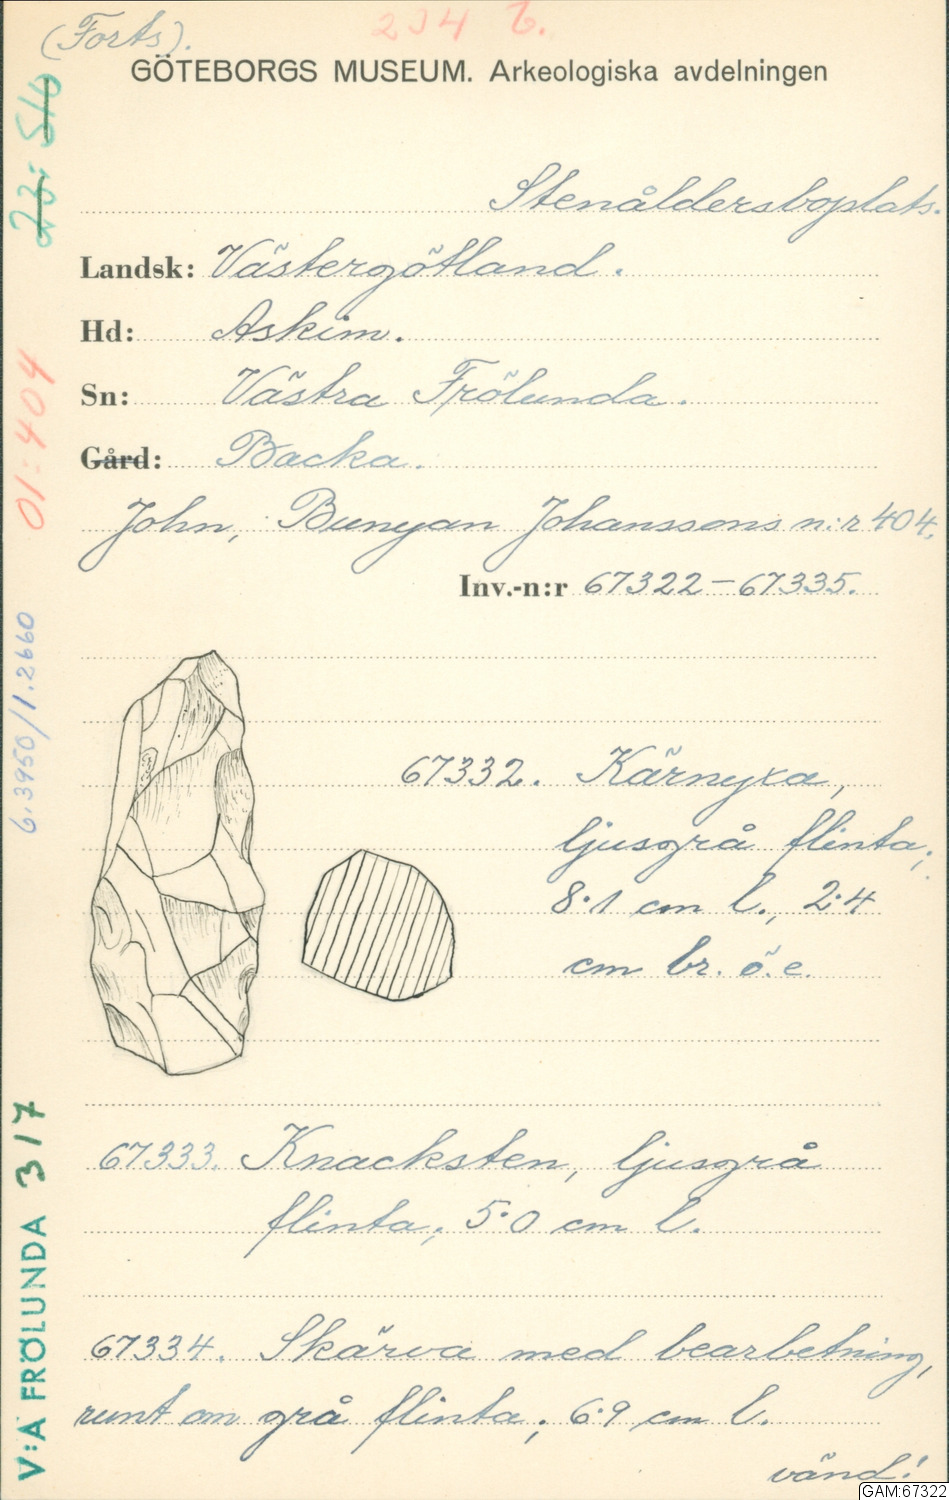 (Forts). 234 b.
GÖTEBORGS MUSEUM. Arkeologiska avdelningen
Stenåldersboplats.
Landsk: Västergötland.
Hd: Askim.
Sn: Västra Frölunda.
Gård: Backa.
John, Bunyan Johanssons n:r 404.
Inv.-n:r 67322-67335.
67332. Kärnyxa,
ljusgrå flinta;
8·1 cm l., 2·4
cm br. ö. e.
67333. Knacksten, ljusgrå
flinta; 5·0 cm l.
67334. Skärva med bearbetning,
runt om grå flinta; 6·9 cm l.
vänd!
01:404
6.3950/1.2660
V:A FRÖLUNDA 317
GAM:67322